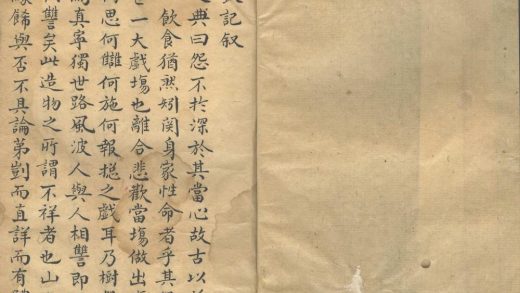 記叙
典曰怨不於深於其當心故古以
飲食猶然矧関身家性命者乎其
一大戲塲也離合悲歡當塲做出
何恩何讎何施何報揔之戲耳乃樹
真寧獨世路風波人與人相讐即
讐矣此造物之所謂不祥者也山
餙與否不具論第剴而直詳而有